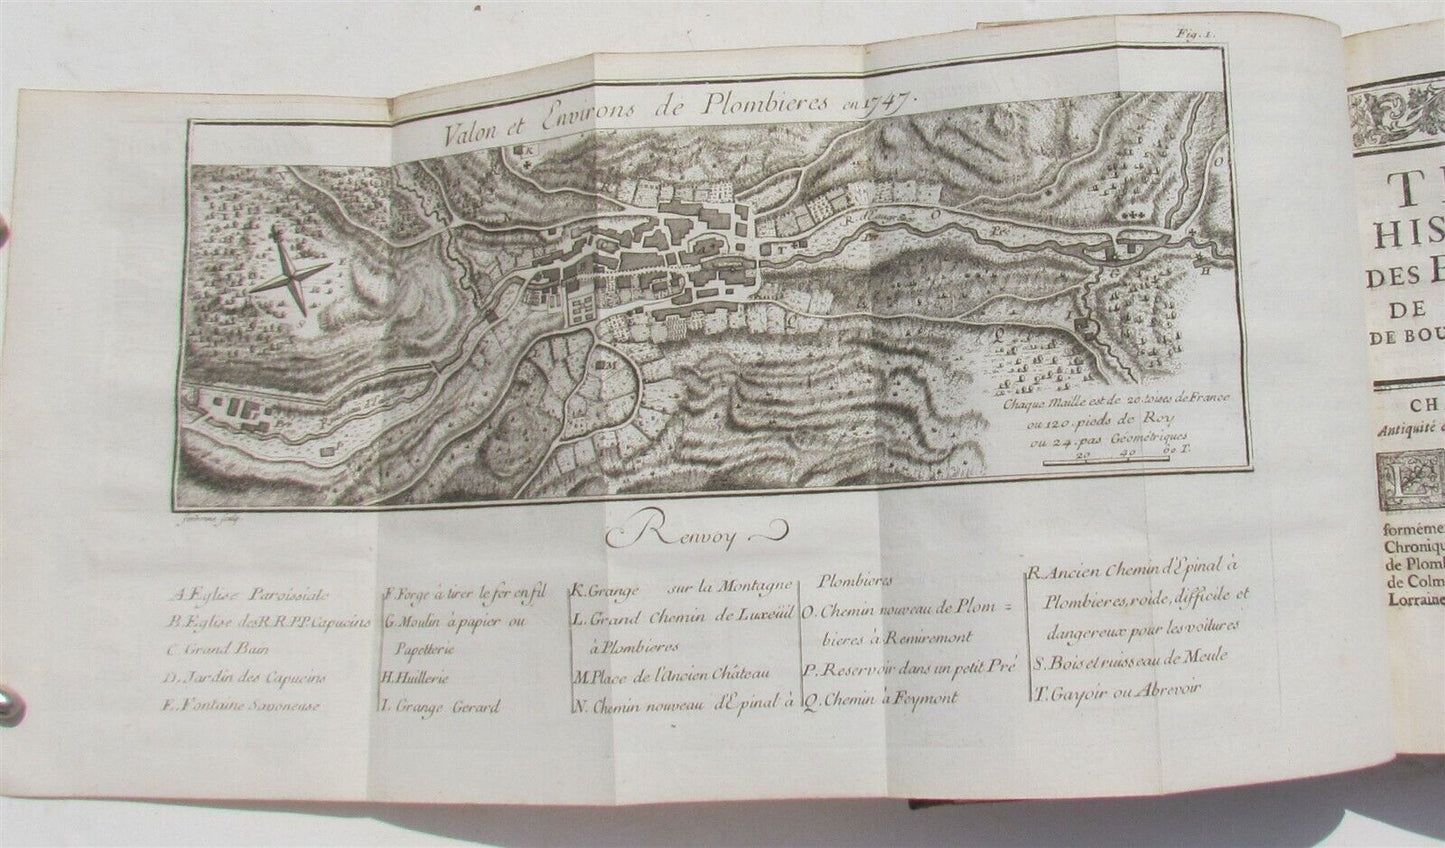 Fig. 1.
Valon et Environs de Plombieres en 1747.
Chaque Maille est de 20. toises de France
ou 120. pieds de Roy
ou 24. pas Geométriques
20 40 60 T.
sculp.
Renvoy
A Eglise Paroissiale
B. Eglise des R.R.P.P. Capucins
C. Grand Bain
D. Jardin des Capucins
E. Fontaine Savoneuse
F. Forge à tirer le fer en fil
G. Moulin à papier ou
Papetterie
H. Huillerie
I. Grange Gerard
K. Grange sur la Montagne
L. Grand Chemin de Luxeüil
à Plombieres
M. Place de l'Ancien Château
N. Chemin nouveau d'Epinal à
Plombieres
O. Chemin nouveau de Plom =
bieres à Remiremont
P. Reservoir dans un petit Pré
Q. Chemin à Feymont
R. Ancien Chemin d'Epinal à
Plombieres, roide, difficile et
dangereux pour les voitures
S. Bois et ruisseau de Meule
T. Gayoir ou Abrevoir
HIS
DES
DE
DE BOU
CH
Antiquité
formeme
Chroniqu
de Plom
de Colm
Lorraine